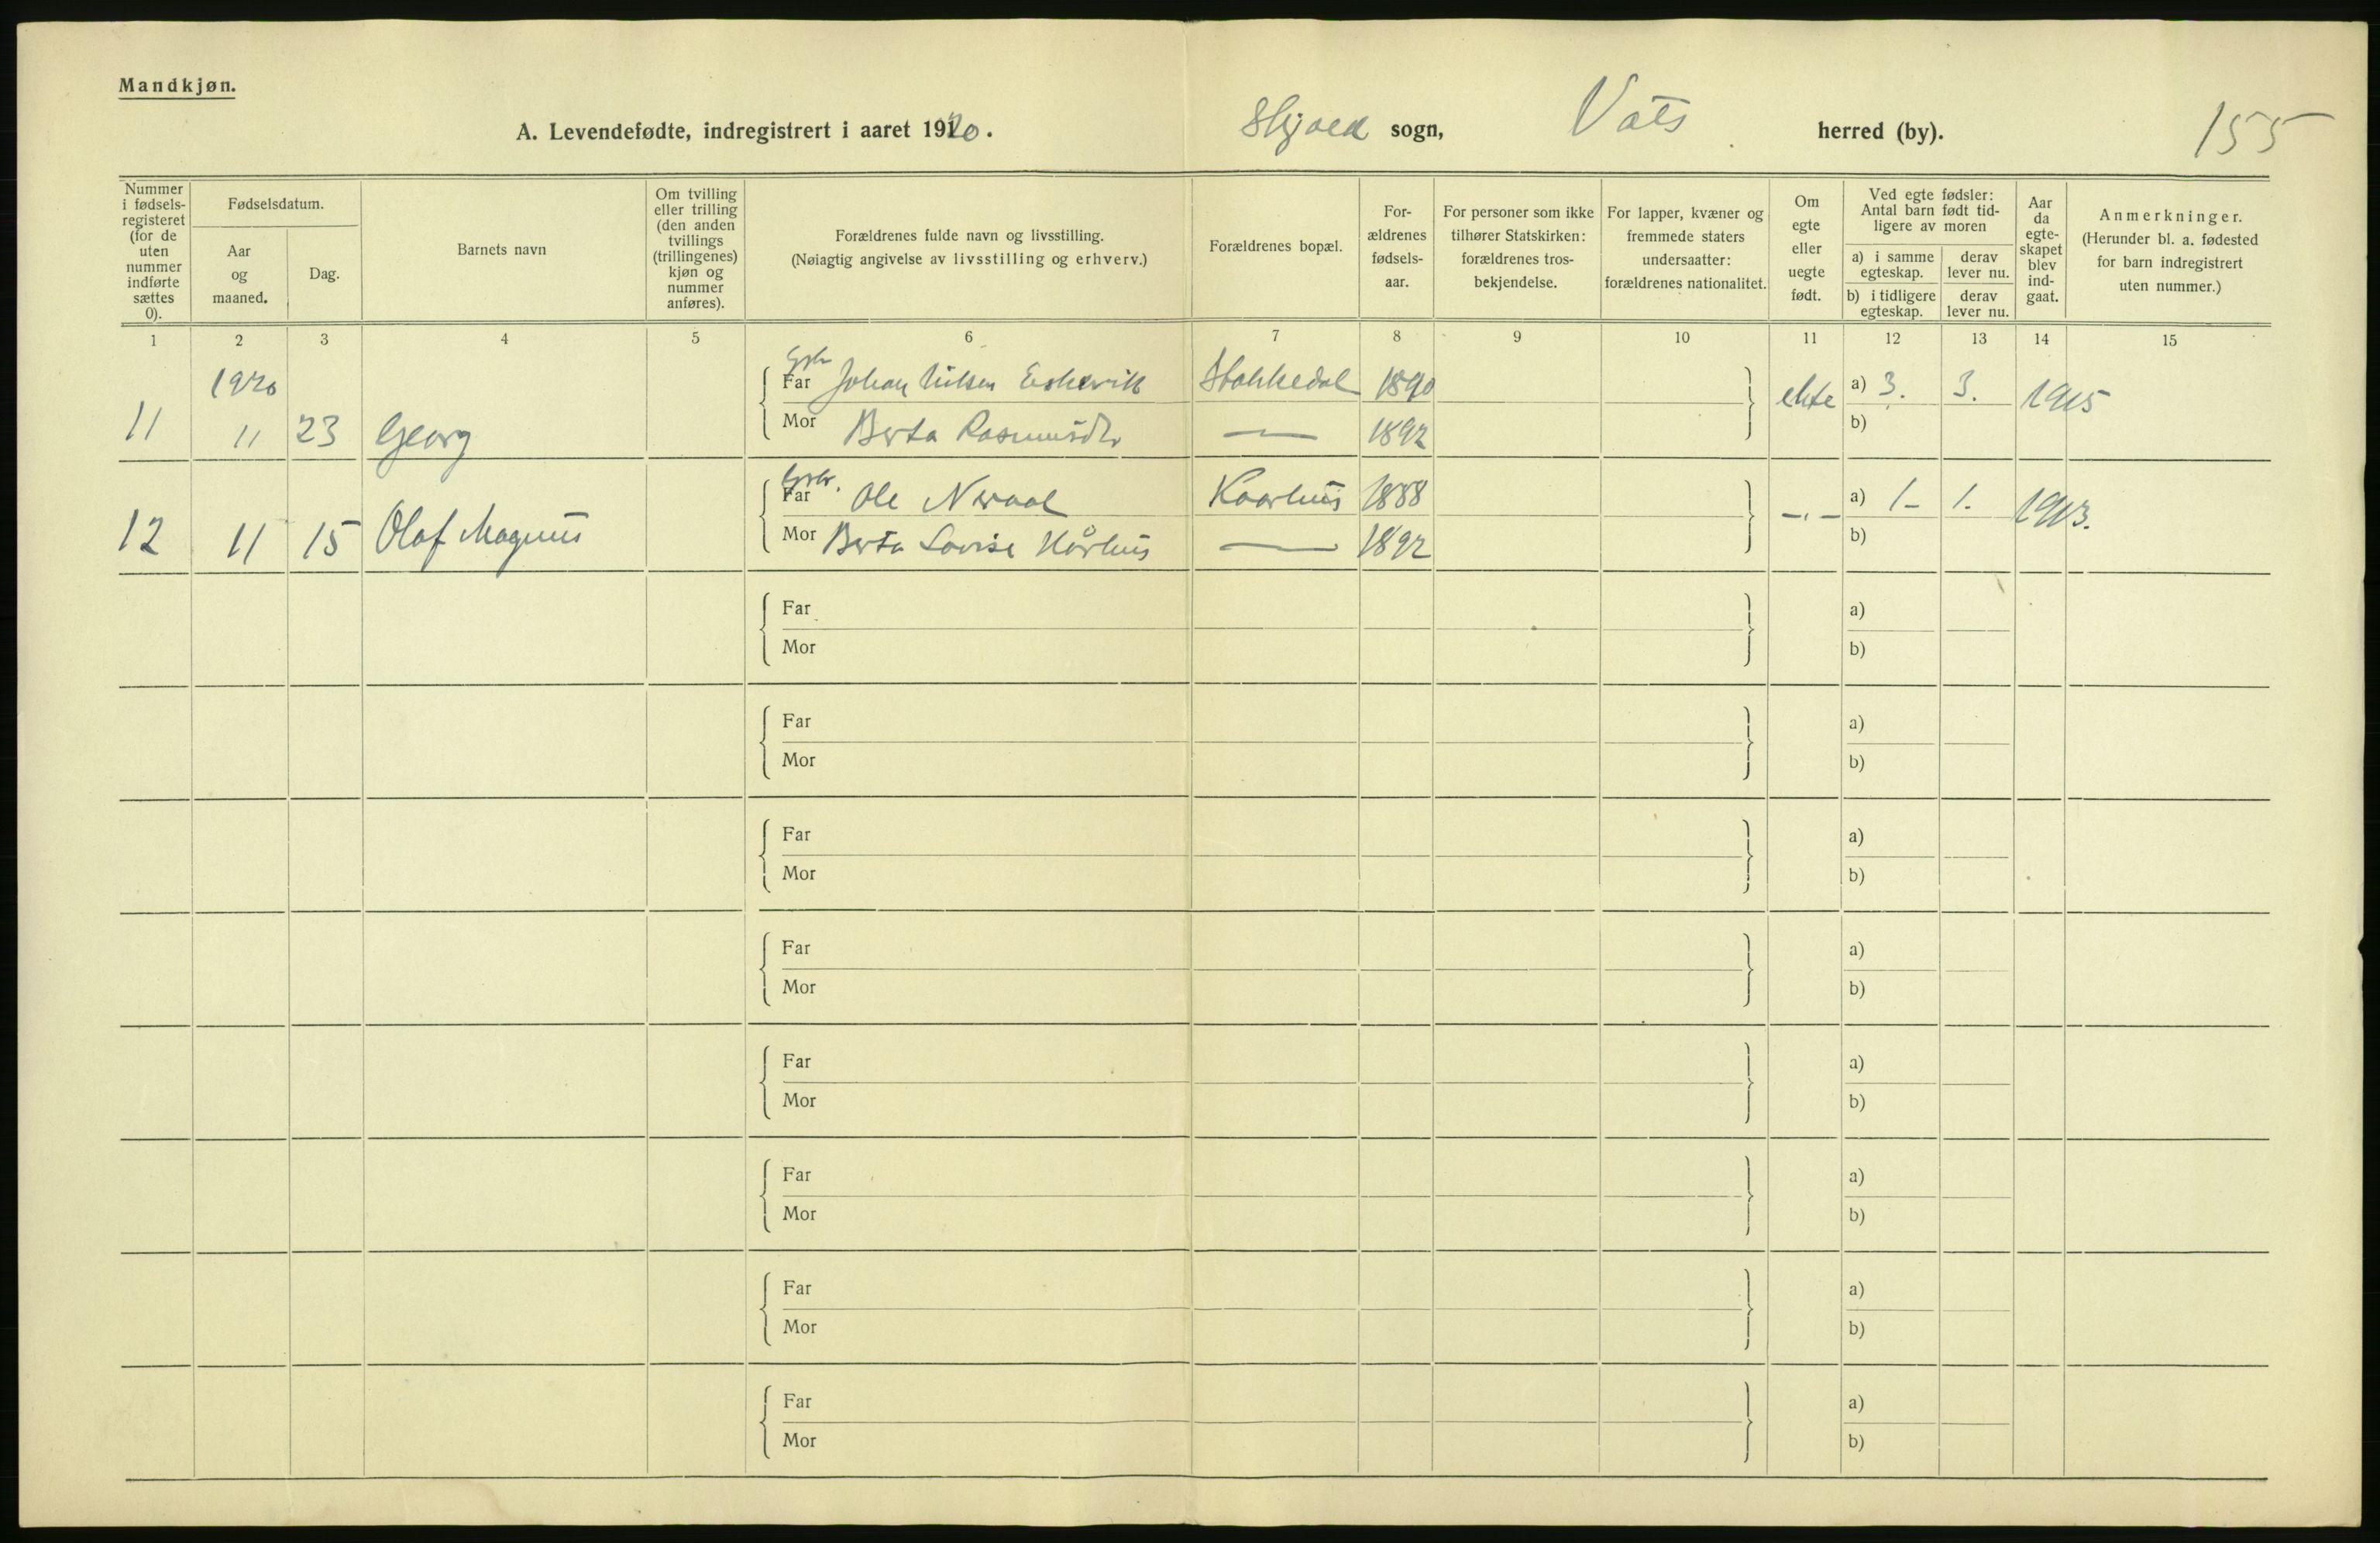 Mandkjøn.
A. Levendefødte, indregistrert i aaret 1920. Skjold sogn, Vats herred (by). 155
Nummer i fødsels-registeret (for de uten nummer indførte sættes 0).
Fødselsdatum.
Aar og maaned.
Dag.
Barnets navn
Om tvilling eller trilling (den anden tvillings (trillingenes) kjøn og nummer anføres).
Forældrenes fulde navn og livsstilling.
(Nøiagtig angivelse av livsstilling og erhverv.)
Forældrenes bopæl.
For-ældrenes fødsels-aar.
For personer som ikke tilhører Statskirken: forældrenes tros-bekjendelse.
For lapper, kvæner og fremmede staters undersaatter: forældrenes nationalitet.
Om egte eller uegte født.
Ved egte fødsler: Antal barn født tid-ligere av moren
a) i samme egteskap.
derav lever nu.
b) i tidligere egteskap.
derav lever nu.
Aar da egte-skapet blev ind-gaat.
Anmerkninger.
(Herunder bl. a. fødested for barn indregistrert uten nummer.)
1 2 3 4 5 6 7 8 9 10 11 12 13 14 15
1920
Far Johan Nilsen Eskevik Stakkedal 1890 ekte a) 3. 3. 1915
11 11 23 Georg Mor Berta Rasmusdtr — 1892 b)
Far Ole Neraal Kaarhus 1888 -"- a) 1- 1. 1913.
12 11 15 Olaf Magnus Mor Berta Lovise Kårhus — 1892 b)
Far a)
Mor b)
Far a)
Mor b)
Far a)
Mor b)
Far a)
Mor b)
Far a)
Mor b)
Far a)
Mor b)
Far a)
Mor b)
Far a)
Mor b)